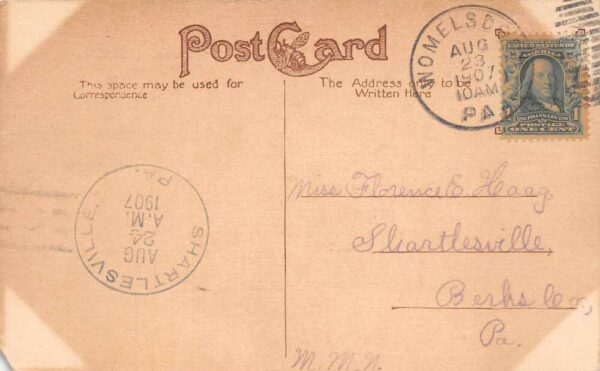 POST CARD
This space may be used for
Correspondence
The Address only to be
Written Here
WOMELSDO
AUG
23
1907
10AM
PA
UNITED STATES OF
AMERICA
FRANKLIN
POSTAGE
1 ONE CENT 1
SHARTLESVILLE,
PA.
AUG
24
A.M.
1907
Miss Florence E. Haag,
Shartlesville,
Berks Co,
Pa.
M. M. N.